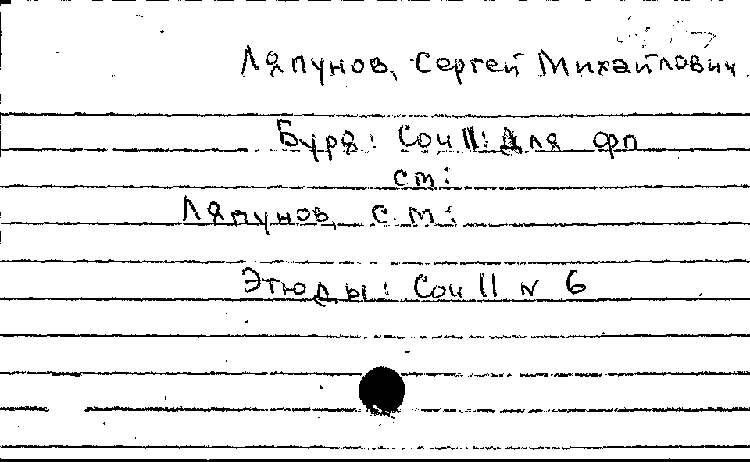 Ляпунов, Сергей Михайлович
Буря: Соч 11: Для фп
см:
Ляпунов, С. М:
Этюды: Соч 11 N 6